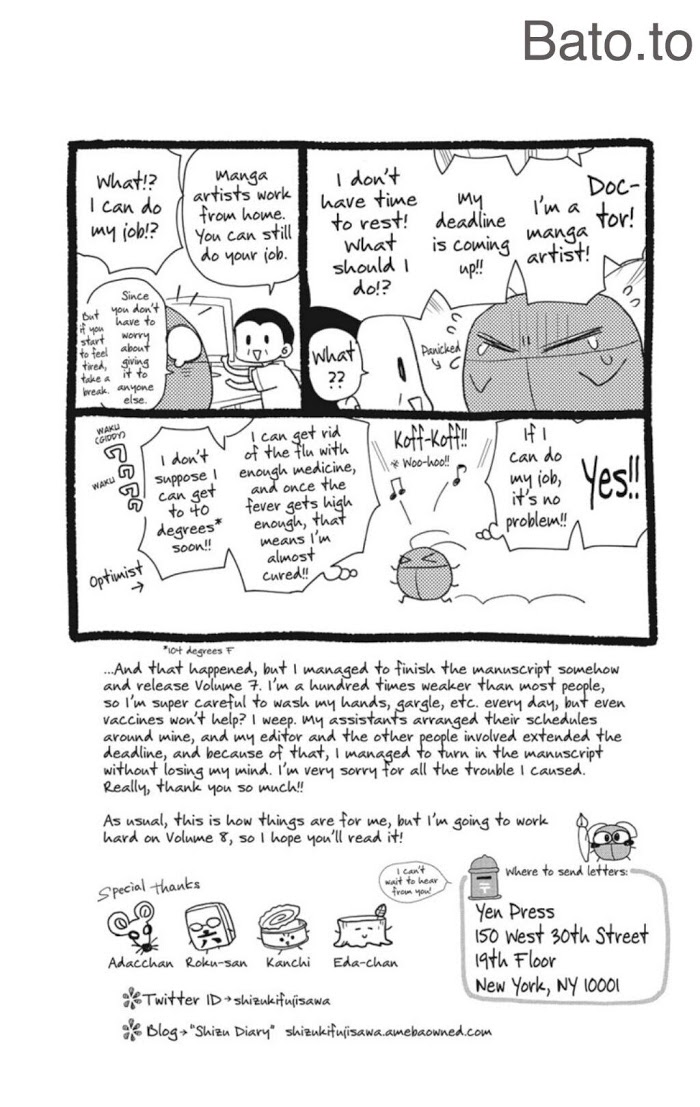 Bato.to
Doc-
tor!
I'm a
manga
artist!
My
deadline
is coming
up!!
I don't
have time
to rest!
What
should I
do!?
Panicked
What
??
Manga
artists work
from home.
You can still
do your job.
What!?
I can do
my job!?
Since
you don't
have to
worry
about
giving
it to
anyone
else.
But
if you
start
to feel
tired,
take a
break.
Yes!!
If I
can do
my job,
it's no
problem!!
Koff-Koff!!
* Woo-hoo!!
I can get rid
of the flu with
enough medicine,
and once the
fever gets high
enough, that
means I'm
almost
cured!!
I don't
suppose I
can get
to 40
degrees*
soon!!
WAKU
(GIDDY)
WAKU
Optimist
→
*104 degrees F
...And that happened, but I managed to finish the manuscript somehow
and release Volume 7. I'm a hundred times weaker than most people,
so I'm super careful to wash my hands, gargle, etc. every day, but even
vaccines won't help? I weep. My assistants arranged their schedules
around mine, and my editor and the other people involved extended the
deadline, and because of that, I managed to turn in the manuscript
without losing my mind. I'm very sorry for all the trouble I caused.
Really, thank you so much!!
As usual, this is how things are for me, but I'm going to work
hard on Volume 8, so I hope you'll read it!
Special thanks
I can't
wait to hear
from you!
Where to send letters:
〒
Yen Press
150 West 30th Street
19th Floor
New York, NY 10001
六
Adacchan Roku-san Kanchi Eda-chan
Twitter ID→shizukifujisawa
Blog→"Shizu Diary" shizukifujisawa.amebaownd.com